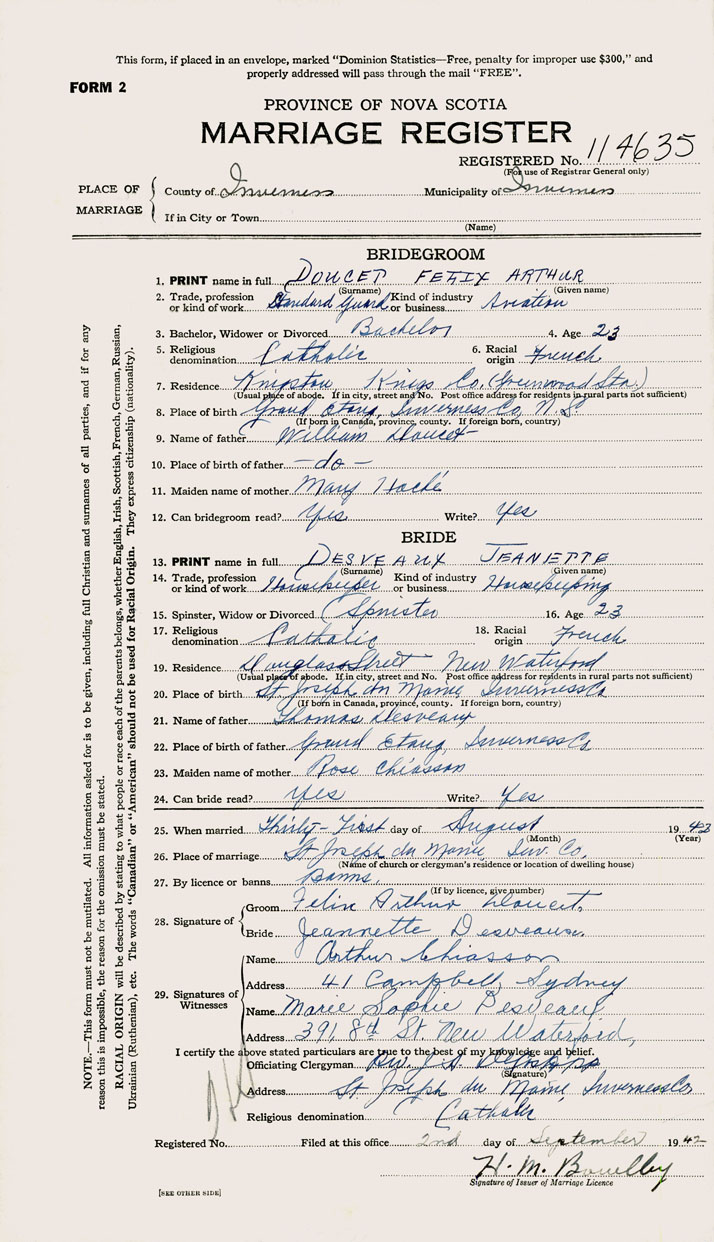 This form, if placed in an envelope, marked "Dominion Statistics—Free, penalty for improper use $300," and
properly addressed will pass through the mail "FREE".
FORM 2
PROVINCE OF NOVA SCOTIA
MARRIAGE REGISTER
REGISTERED No. 114635
(For use of Registrar General only)
PLACE OF MARRIAGE
County of Inverness Municipality of Inverness
If in City or Town
(Name)
BRIDEGROOM
1. PRINT name in full DOUCET FELIX ARTHUR
(Surname) (Given name)
2. Trade, profession or kind of work Standard Guard Kind of industry or business Aviation
3. Bachelor, Widower or Divorced Bachelor 4. Age 23
5. Religious denomination Catholic 6. Racial origin French
7. Residence Kingston, Kings Co. (Greenwood Sta.)
(Usual place of abode. If in city, street and No. Post office address for residents in rural parts not sufficient)
8. Place of birth Grand Etang, Inverness Co, N.S.
(If born in Canada, province, county. If foreign born, country)
9. Name of father William Doucet
10. Place of birth of father — do —
11. Maiden name of mother Mary Haché
12. Can bridegroom read? Yes Write? Yes
BRIDE
13. PRINT name in full DESVEAUX JEANETTE
(Surname) (Given name)
14. Trade, profession or kind of work Housekeeper Kind of industry or business Housekeeping
15. Spinster, Widow or Divorced Spinster 16. Age 23
17. Religious denomination Catholic 18. Racial origin French
19. Residence Douglass Street New Waterford
(Usual place of abode. If in city, street and No. Post office address for residents in rural parts not sufficient)
20. Place of birth St Joseph du Moine, Inverness Co
(If born in Canada, province, county. If foreign born, country)
21. Name of father Thomas Desveaux
22. Place of birth of father Grand Etang, Inverness Co
23. Maiden name of mother Rose Chiasson
24. Can bride read? Yes Write? Yes
25. When married Thirty-First day of August 19
(Month) (Year)
26. Place of marriage St Joseph du Moine, Inv Co,
(Name of church or clergyman's residence or location of dwelling house)
27. By licence or banns Banns.
(If by licence, give number)
28. Signature of
Groom Felix Arthur Doucet.
Bride Jeannette Desveaux.
29. Signatures of Witnesses
Name Arthur Chiasson
Address 41 Campbell, Sydney
Name Marie Sophie Desveaux
Address 391, 8th St. New Waterford,
I certify the above stated particulars are true to the best of my knowledge and belief.
Officiating Clergyman Rev. J. A.
(Signature)
Address St Joseph du Moine, Inverness Co
Religious denomination Catholic
Registered No. Filed at this office 2nd day of September 1942
H. M.
Signature of Issuer of Marriage Licence
[SEE OTHER SIDE]
NOTE.—This form must not be mutilated. All information asked for is to be given, including full Christian and surnames of all parties, and if for any
reason this is impossible, the reason for the omission must be stated.
RACIAL ORIGIN will be described by stating to what people or race each of the parents belongs, whether English, Irish, Scottish, French, German, Russian,
Ukrainian (Ruthenian), etc. The words "Canadian" or "American" should not be used for Racial Origin. They express citizenship (nationality).